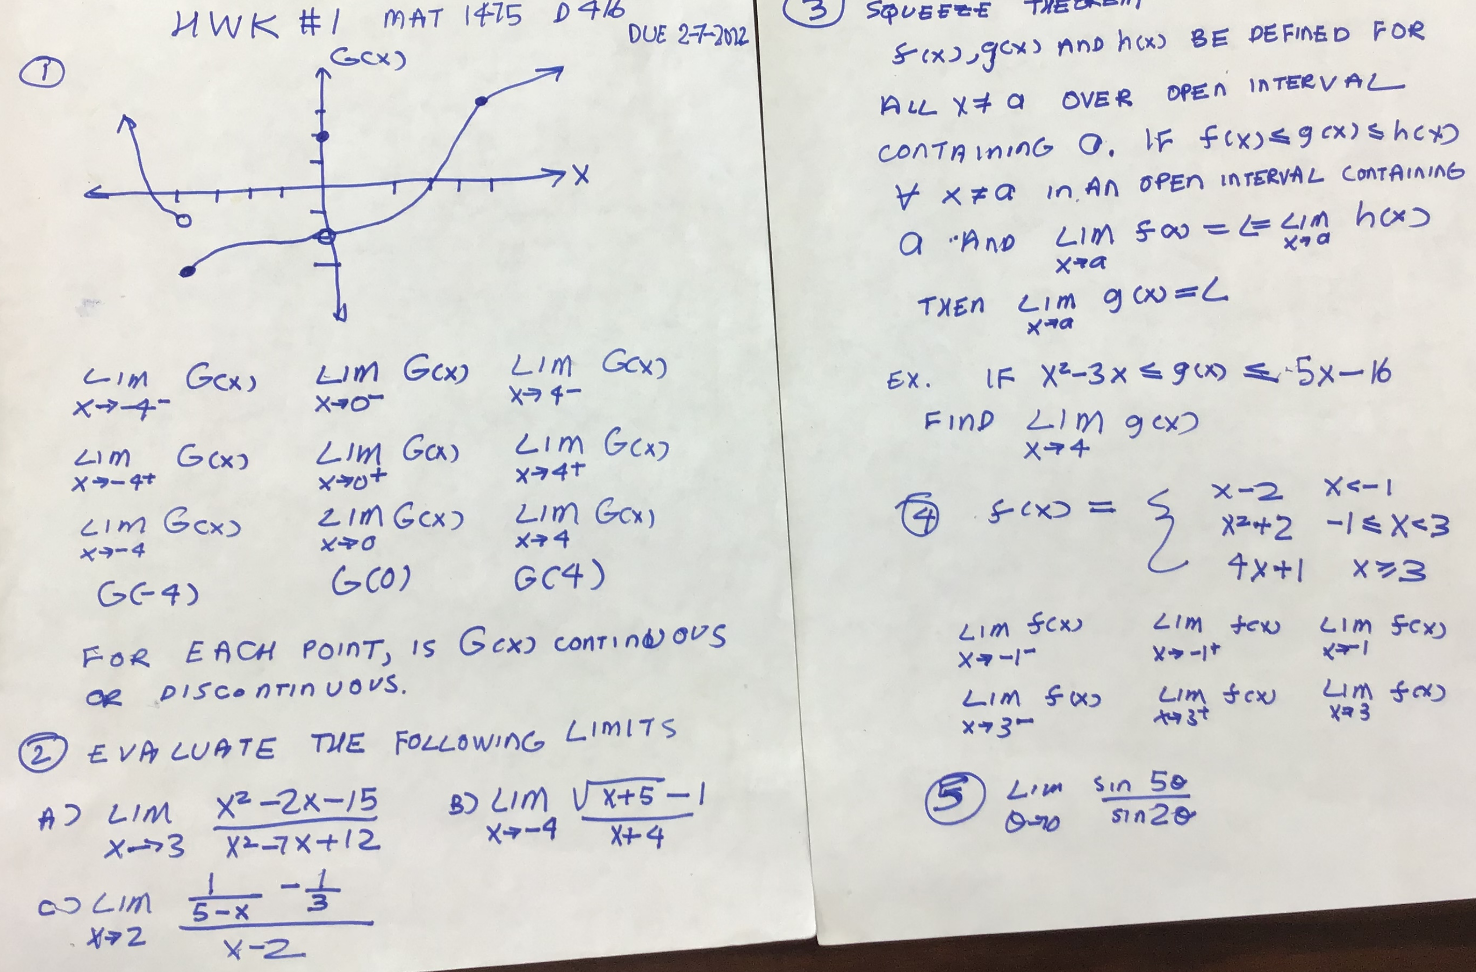 HWK #1 MAT 1475 D416
DUE 2-7-2022
① G(x)
X
LIM G(x) LIM G(x) LIM G(x)
x→-4⁻ x→0⁻ x→4⁻
LIM G(x) LIM G(x) LIM G(x)
x→-4⁺ x→0⁺ x→4⁺
LIM G(x) LIM G(x) LIM G(x)
x→-4 x→0 x→4
G(-4) G(0) G(4)
FOR EACH POINT, IS G(x) CONTINUOUS
OR DISCONTINUOUS.
② EVALUATE THE FOLLOWING LIMITS
A) LIM x→3 (x²-2x-15)/(x²-7x+12) B) LIM x→-4 (√(x+5) - 1)/(x+4)
C) LIM x→2 (1/(5-x) - 1/3)/(x-2)
③ SQUEEZE THEOREM
f(x), g(x) AND h(x) BE DEFINED FOR
ALL X≠a OVER OPEN INTERVAL
CONTAINING a. IF f(x)≤g(x)≤h(x)
∀ x≠a in AN OPEN INTERVAL CONTAINING
a AND LIM x→a f(x) = L = LIM x→a h(x)
THEN LIM x→a g(x) = L
EX. IF x²-3x ≤ g(x) ≤ 5x-16
FIND LIM x→4 g(x)
④ f(x) = { x-2 x<-1
x²+2 -1≤x<3
4x+1 x≥3
LIM f(x) LIM f(x) LIM f(x)
x→-1⁻ x→-1⁺ x→-1
LIM f(x) LIM f(x) LIM f(x)
x→3⁻ x→3⁺ x→3
⑤ LIM θ→0 sin 5θ / sin 2θ